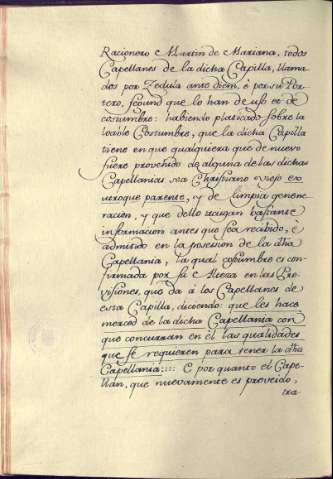 Racionero e Martin de Mariana, todos
Capellanes de la dicha Capilla, llama
dos por Zedula ante diem, é por su Por
tero, segund que lo han de uso et de
costumbre: habiendo platicado sobre la
loable Costumbre, que la dicha Capilla
tiene en que qualquiera que de nuevo
fuere provehido de alguna de las dichas
Capellanias sea Chripstiano viejo ex
utroque parente, y de limpia gene
racion, y que dello hayan bastante
informacion antes que sea recibido, é
admitido en la posesion de la dha
Capellania, la qual costumbre es con
firmada por su Alteza en las Pro
visiones, que da á los Capellanes de
esta Capilla, diciendo: que les hace
merced de la dicha Capellania con
que concurran en él las qualidades
que se requieren para tener la dha
Capellania:::: E por quanto el Cape
llan, que nuevamente es proveido,